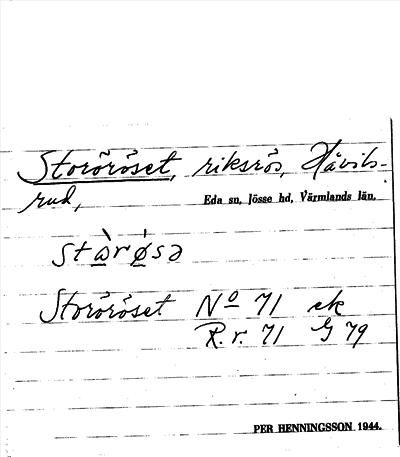 Storöröset, riksrös, Håvils-
rud, Eda sn, Jösse hd, Värmlands län.
stὼrǿsə
Storöröset Nº 71 ek
R.r. 71 G 79
PER HENNINGSSON 1944.